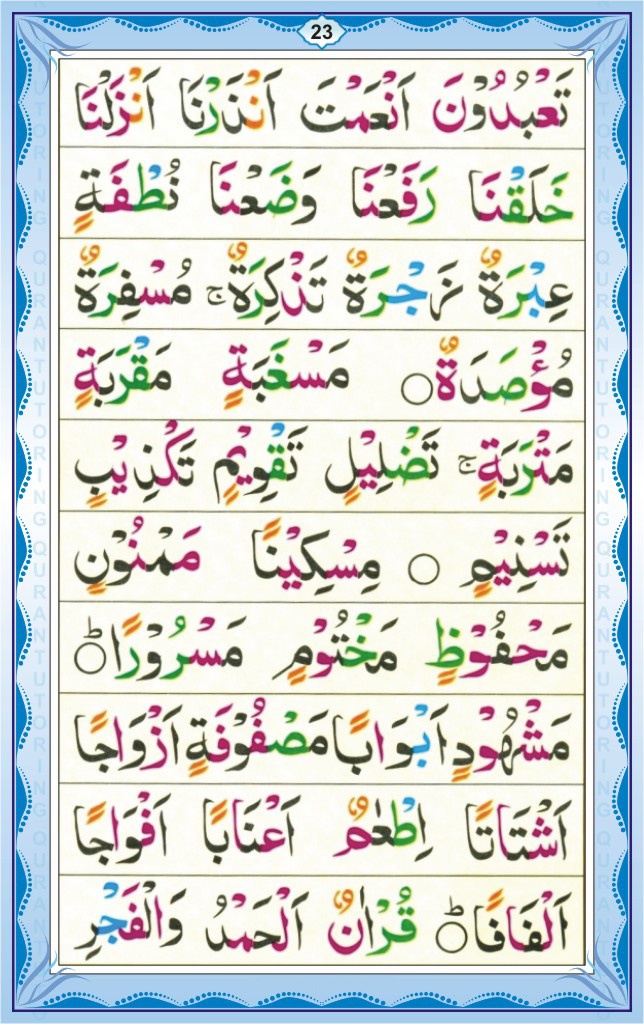 23
تَعْبُدُوْنَ اَنْعَمْتَ اَنْذَرْنَا اَنْزَلْنَا
خَلَقْنَا رَفَعْنَا وَضَعْنَا نُطْفَةٍ
عِبْرَةٌ زَجْرَةٌ تَذْكِرَةٌ ۚ مُسْفِرَةٌ
مُؤْصَدَةٌ ○ مَسْغَبَةٍ مَقْرَبَةٍ
مَتْرَبَةٍ ۚ تَضْلِيْلٍ تَقْوِيْمٍ تَكْذِيْبٍ
تَسْنِيْمٍ ○ مِسْكِيْنًا مَمْنُوْنٍ
مَحْفُوْظٍ مَخْتُوْمٍ مَسْرُوْرًا ○ؕ
مَشْهُوْدٍ اَبْوَابًا مَصْفُوْفَةٍ اَزْوَاجًا
اَشْتَاتًا اِطْعٰمٌ اَعْنَابًا اَفْوَاجًا
اَلْفَافًا ○ؕ قُرْاٰنٌ اَلْحَمْدُ وَالْفَجْرِ
QURAN TUTORING QURAN TUTORING QURAN TUTORING
QURAN TUTORING QURAN TUTORING QURAN TUTORING